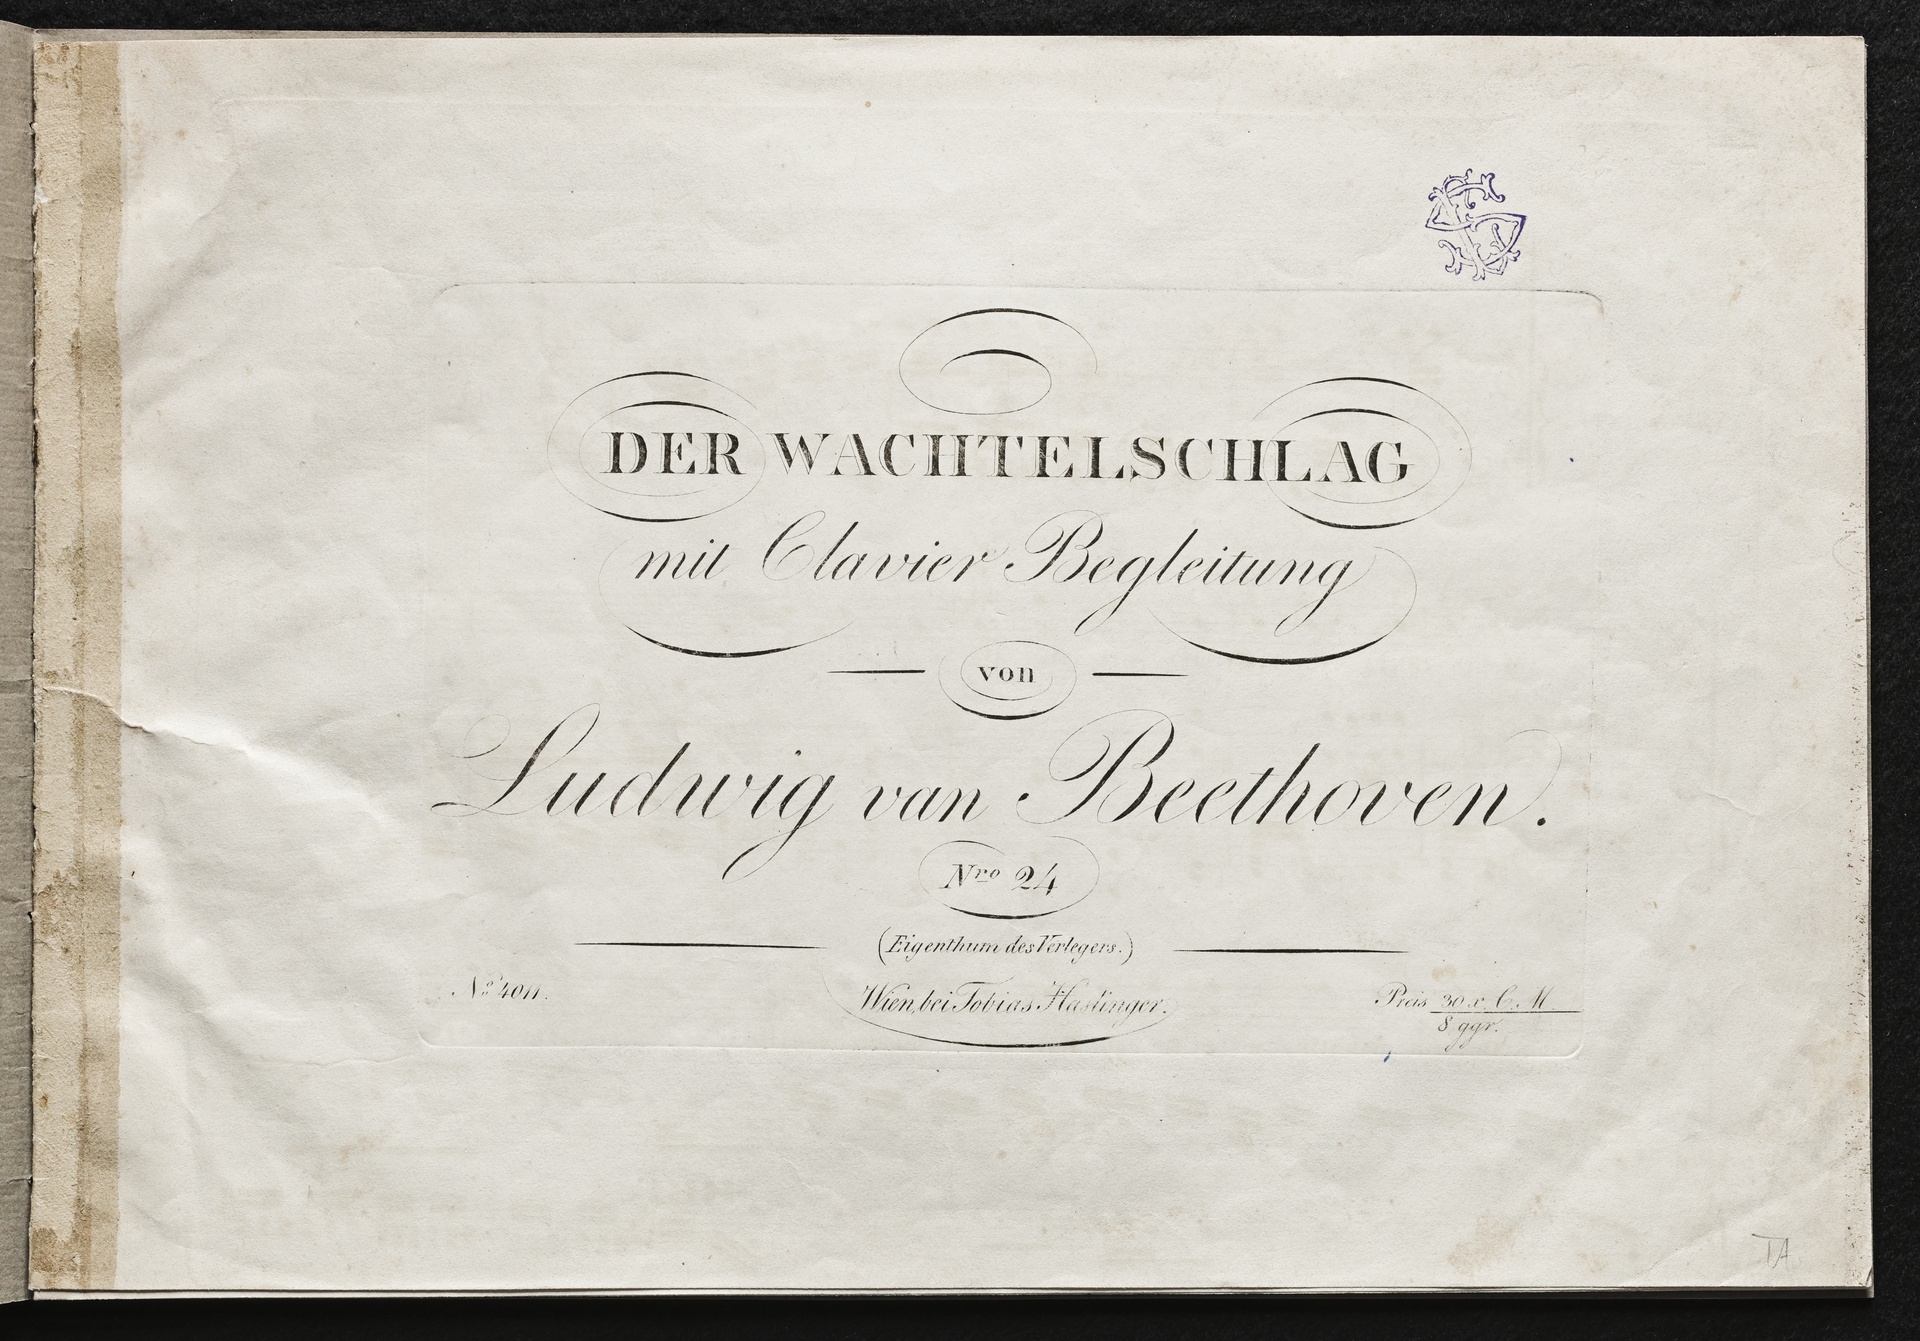 DER WACHTELSCHLAG
mit Clavier Begleitung
von
Ludwig van Beethoven.
Nro 24
(Eigenthum des Verlegers.)
No 4011.
Wien, bei Tobias Haslinger.
Preis 30 x. C. M
8 ggr.
TA